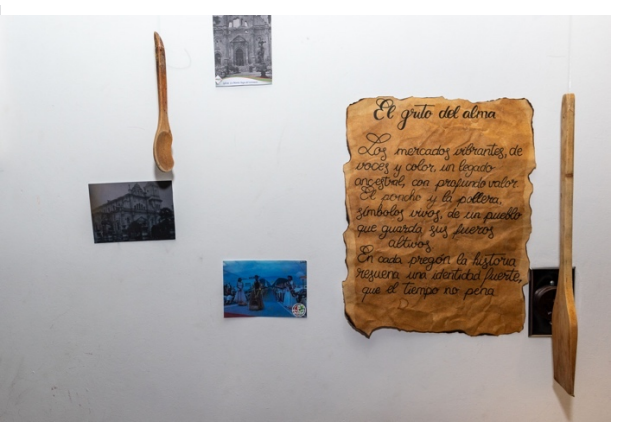 El grito del alma
Los mercados vibrantes, de
voces y color, un legado
ancestral, con profundo valor
El poncho y la pollera,
símbolos vivos, de un pueblo
que guarda sus fueros
altivos
En cada pregón la historia
resuena una identidad fuerte,
que el tiempo no